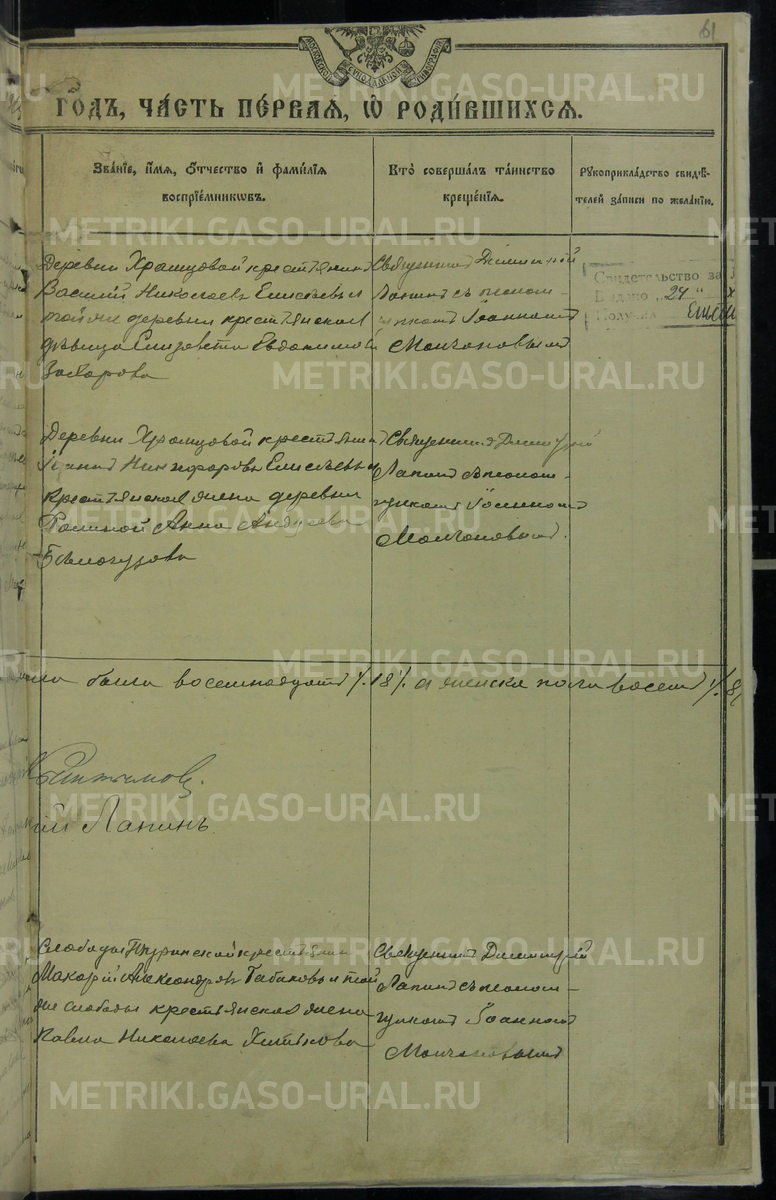 61
МОСКОВСКОЙ СѴНОДАЛЬНОЙ ТИПОГРАФІИ
ГОДЪ, ЧА́СТЬ ПЕ́РВАЯ, Ѡ҆ РОДИ́ВШИХСЯ.
Зва́нїе, и҆́мя, ѻ҆́тчество и҆ фами́лїя
воспрїе́мникѡвъ.
Кто̀ соверша́лъ та́инство
креще́нїя.
Рꙋкоприкла́дство свидѣ́-
телей за́писи по жела́нїю.
Деревни Храмцовой крестьянинъ
Василій Николаевъ Елисѣевъ и
той же деревни крестьянская
дѣвица Елизавета Евдокимова
Захарова
Священникъ Димитрій
Лапинъ съ псалом-
щикомъ Іоанномъ
Молчановымъ
Свидетельство за
Выдано „24“ X
Получил
Деревни Храмцовой крестьянинъ
Никифоровъ Елисѣевъ и
крестьянская жена деревни
Анна Андреева
Бѣлоглазова
Священникъ Димитрій
Лапинъ съ псалом-
щикомъ Іоанномъ
Молчановымъ.
было восемнадцать /18/ а женска пола восемь /8/
Лапинъ
Слободы Туринской крестьянинъ
Макарій Александровъ Табаковъ и той
же слободы крестьянская жена
Николаева
Священникъ Димитрій
Лапинъ съ псалом-
щикомъ Іоанномъ
Молчановымъ
METRIKI.GASO-URAL.RU